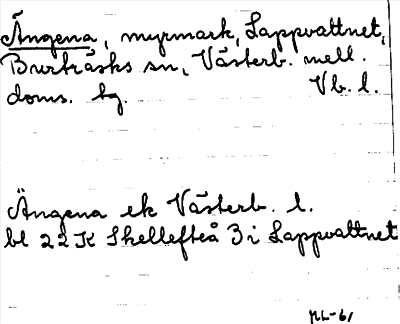 Ängena, myrmark, Lappvattnet,
Burträsks sn, Västerb. mell.
doms. tg. Vb. l.
Ängena ek Västerb. l.
bl 22K Skellefteå 3i Lappvattnet
ML-61